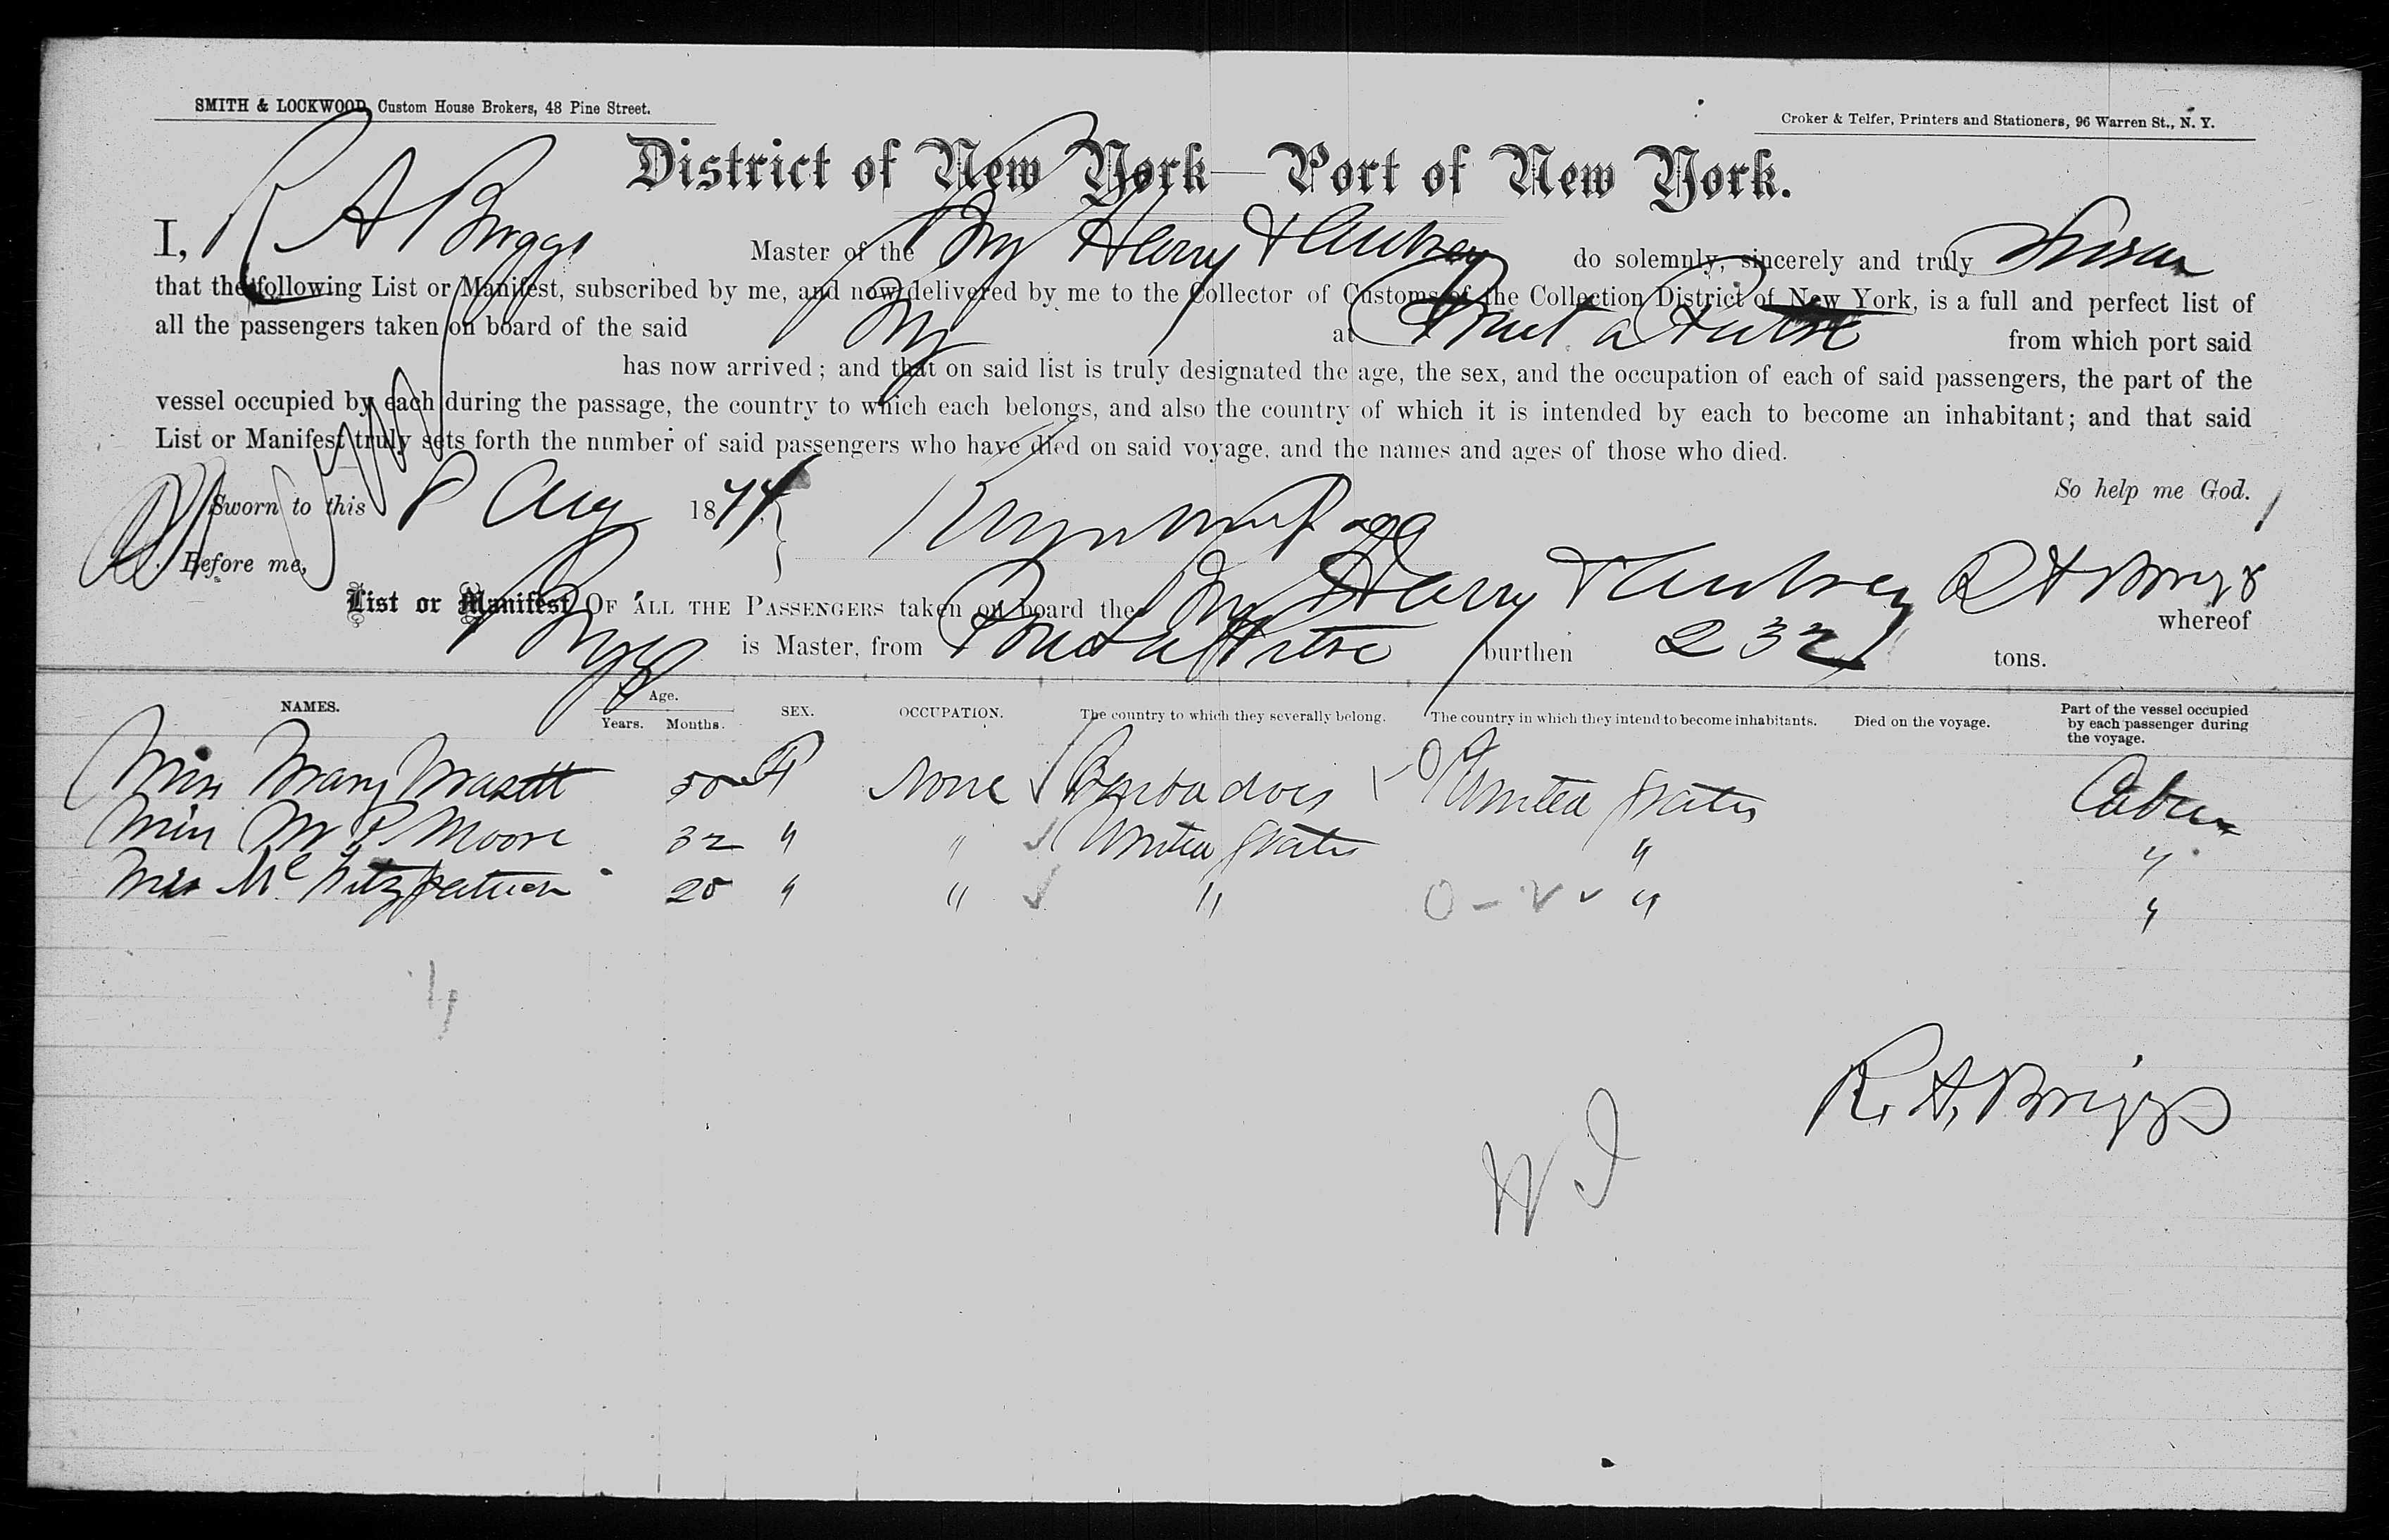 SMITH & LOCKWOOD, Custom House Brokers, 48 Pine Street.
Croker & Telfer, Printers and Stationers, 96 Warren St., N. Y.
District of New York—Port of New York.
I, R A Briggs Master of the Brig Harry & Aubrey do solemnly, sincerely and truly Swear
that the following List or Manifest, subscribed by me, and now delivered by me to the Collector of Customs of the Collection District of New York, is a full and perfect list of
all the passengers taken on board of the said Brig at Point a Pitre from which port said
Brig has now arrived; and that on said list is truly designated the age, the sex, and the occupation of each of said passengers, the part of the
vessel occupied by each during the passage, the country to which each belongs, and also the country of which it is intended by each to become an inhabitant; and that said
List or Manifest truly sets forth the number of said passengers who have died on said voyage, and the names and ages of those who died.
So help me God.
Sworn to this 8 Aug 1874
Before me,
List or Manifest OF ALL THE PASSENGERS taken on board the Brig Harry & Aubrey R A Briggs whereof
is Master, from Point a Pitre burthen 232 tons.
NAMES. Age. Years. Months. SEX. OCCUPATION. The country to which they severally belong. The country in which they intend to become inhabitants. Died on the voyage. Part of the vessel occupied by each passenger during the voyage.
Miss Mary 50 F None Barbadoes United States Cabin
Miss M P Moore 32 " " United States " "
Miss Mc Fitzpatrick 20 " " " " "
R. A. Briggs
W I